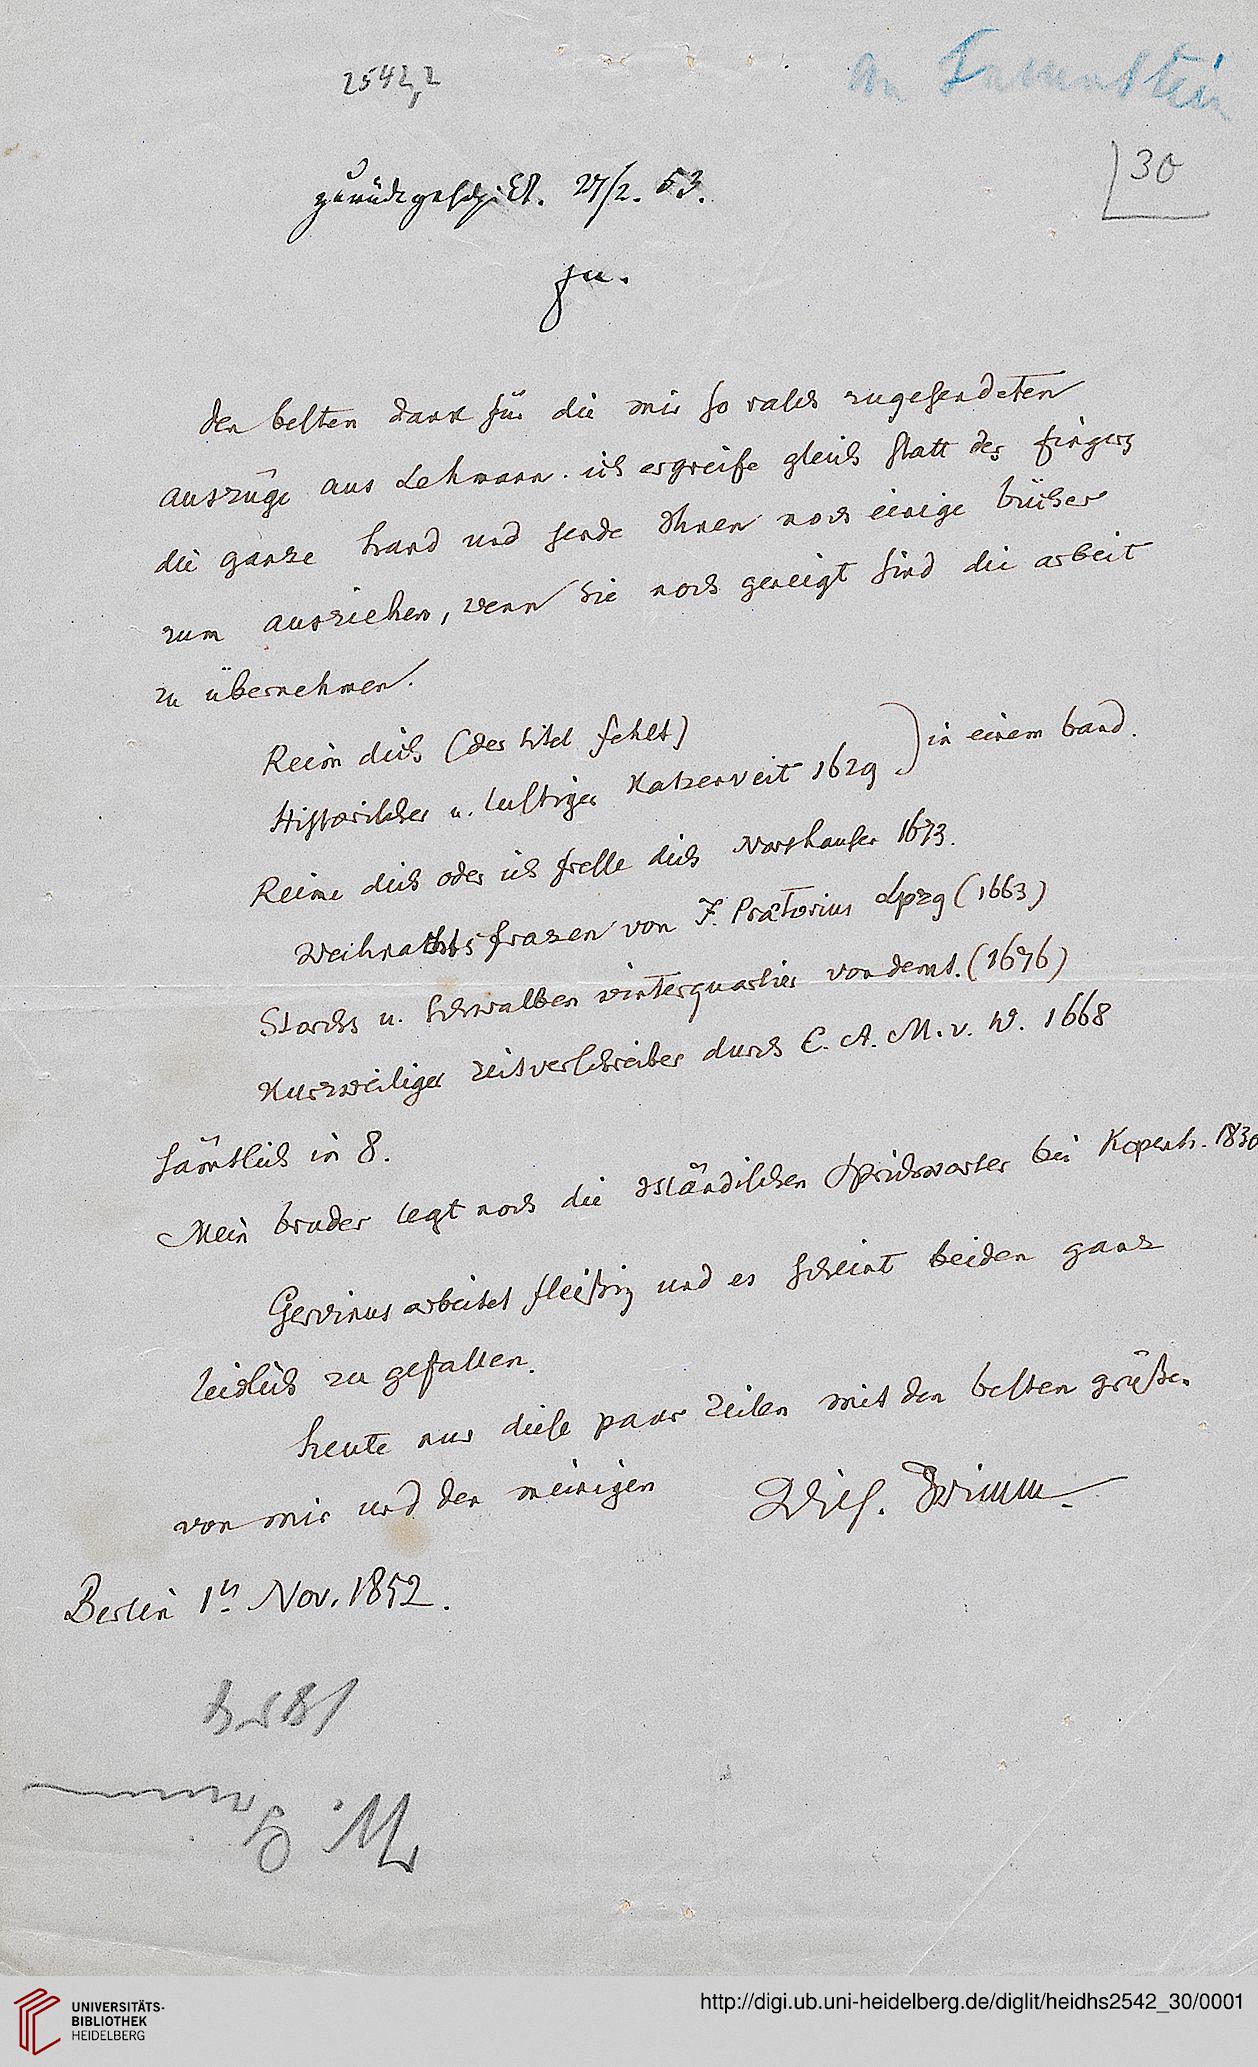 2542,2
An Fallenstein
30
zurückgeschickt. 27/2. 53.
den besten dank für die mir so rasch zugesendeten
auszüge aus Lehmann. ich ergreife gleich statt des fingers
die ganze hand und sende Ihnen noch einige bücher
zum ausziehen, wenn Sie noch geneigt sind die arbeit
zu übernehmen.
Reim dich (der titel fehlt)
Historischer u. lustiger Katzenveit 1629 } in einem band.
Reime dich oder ich fresse dich Northausen 1673.
Weihnachtsfrazen von J. Prætorius Lpzg (1663)
Storchs u. Schwalben winterquartier von dems. (1676)
Kurzweiliger zeitvertreiber durch C. A. M. v. W. 1668
sämtlich in 8.
Mein bruder legt noch die Isländischen Sprichwörter bei Kopenh. 1830
Gervinus arbeitet fleißig und es scheint beiden ganz
leidlich zu gefallen.
heute nur diese paar zeilen mit den besten grüßen
von mir und den meinigen Wilh. Grimm.
Berlin 1tn Nov. 1852.
1852
W. Grimm
UNIVERSITÄTS-
BIBLIOTHEK
HEIDELBERG
http://digi.ub.uni-heidelberg.de/diglit/heidhs2542_30/0001